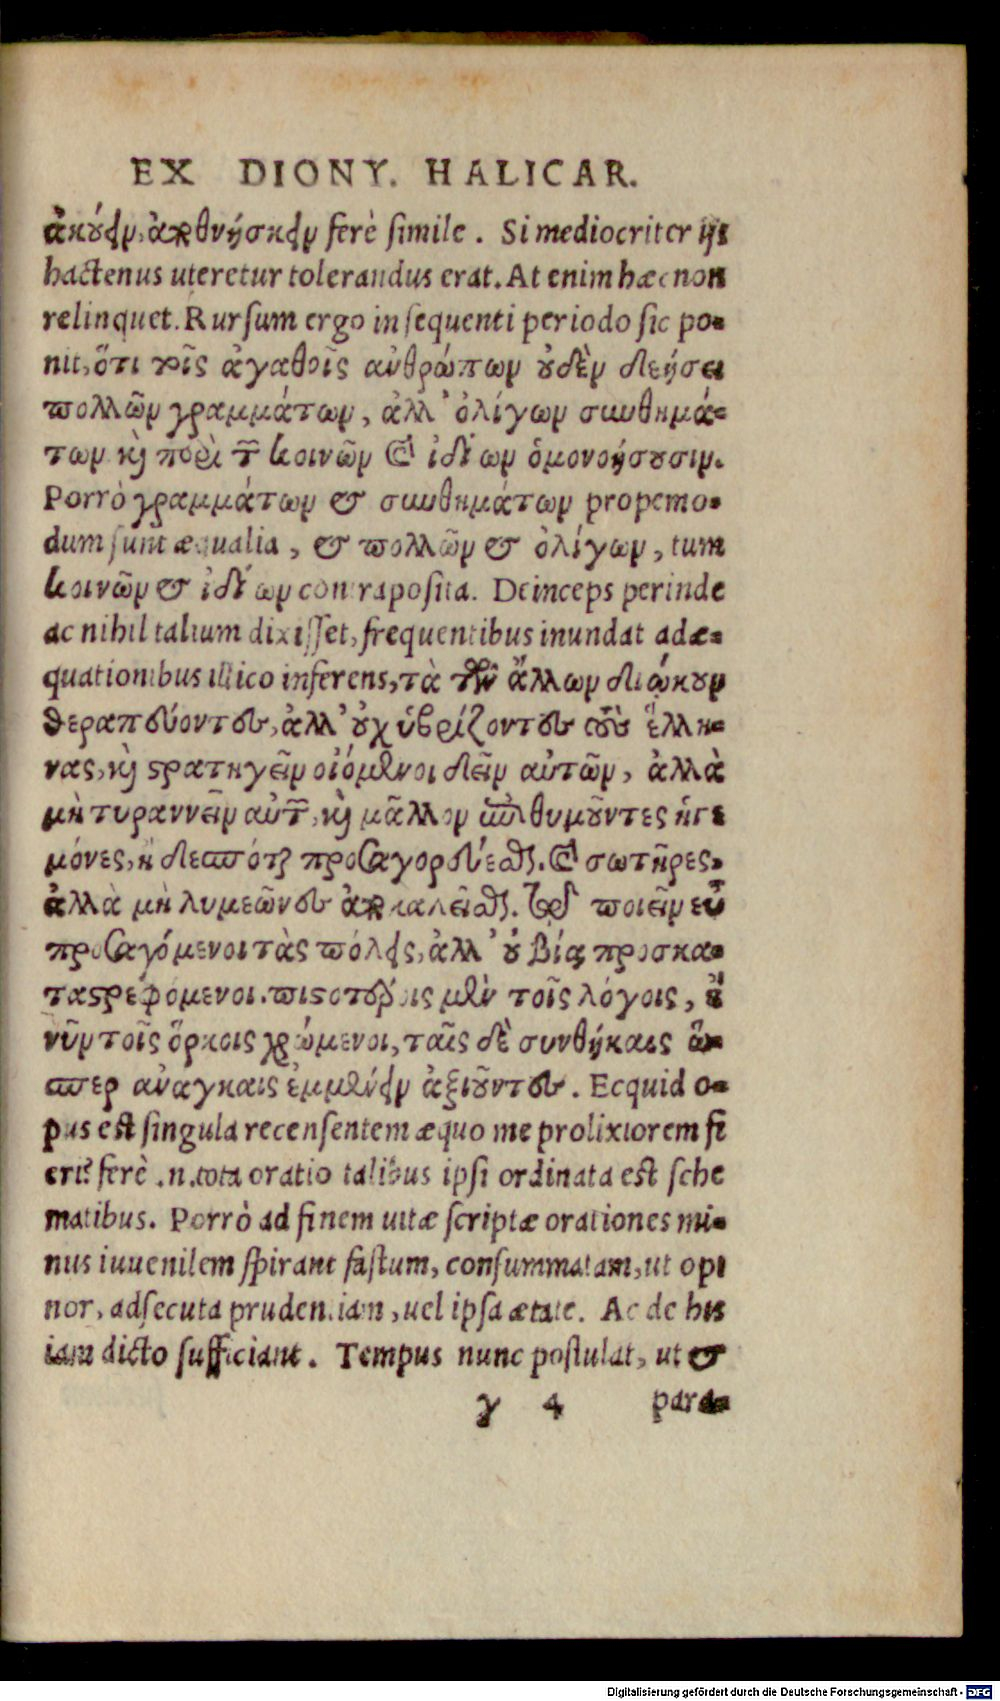 EX DIONY. HALICAR.
ἀκούειν, ἀποθνήσκειν ferè simile. Si mediocriter ijs
hactenus uteretur tolerandus erat. At enim hæc non
relinquet. Rursum ergo in sequenti periodo sic po-
nit, ὅτι τοῖς ἀγαθοῖς ἀνθρώπων οὐδὲν δεήσει
πολλῶν γραμμάτων, ἀλλ' ὀλίγων συνθημά-
των καὶ περὶ τῶν κοινῶν καὶ ἰδίων ὁμονοήσουσιν.
Porrò γραμμάτων & συνθημάτων propemo-
dum sunt æqualia, & πολλῶν & ὀλίγων, tum
κοινῶν & ἰδίων contraposita. Deinceps perinde
ac nihil talium dixisset, frequentibus inundat adæ-
quationibus illico inferens, τὰ τῶν ἄλλων διώκουν
θεραπεύοντες, ἀλλ' οὐχ ὑβρίζοντες τοὺς ἕλλη-
νας, καὶ στρατηγεῖν οἰόμενοι δεῖν αὐτῶν, ἀλλὰ
μὴ τυραννεῖν αὐτῶν, καὶ μᾶλλον ἐπιθυμοῦντες ἡγε
μόνες, ἢ δεσπόται προσαγορεύεσθαι. καὶ σωτῆρες,
ἀλλὰ μὴ λυμεῶνες ἀποκαλεῖσθαι. τῷ ποιεῖν εὖ
προσαγόμενοι τὰς πόλεις, ἀλλ' οὐ βίᾳ προσκα-
ταστρεφόμενοι. πιστοτέροις μὲν τοῖς λόγοις, ἢ
νῦν τοῖς ὅρκοις χρώμενοι, ταῖς δὲ συνθήκαις ὥ-
σπερ ἀνάγκαις ἐμμένειν ἀξιοῦντες. Ecquid o-
pus est singula recensentem æquo me prolixiorem fi
eri? ferè .n. tota oratio talibus ipsi ordinata est sche
matibus. Porrò ad finem uitæ scriptæ orationes mi-
nus iuuenilem spirant fastum, consummatam, ut opi
nor, adsecuta prudentiam, uel ipsa ætate. Ac de his
iam dicto sufficiant. Tempus nunc postulat, ut &
γ 4 para-
Digitalisierung gefördert durch die Deutsche Forschungsgemeinschaft - DFG